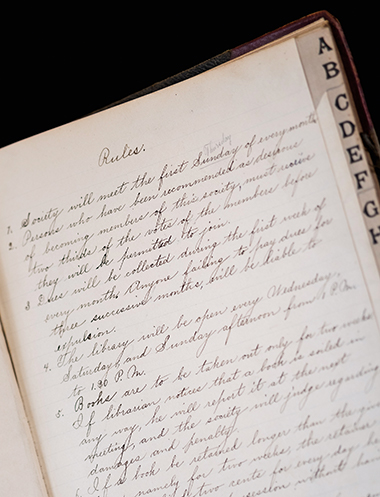 Rules.
Thursday
1. Society will meet the first Sunday of every month.
2. Persons who have been recommended as desirous
of becoming members of this society, must receive
two thirds of the votes of the members before
they will be permitted to join.
3 Dues will be collected during the first week of
every month. Anyone failing to pay dues for
three successive months, will be liable to
expulsion.
4. The library will be open every Wednesday,
Saturday and Sunday afternoon from 1 P.M.
to 1.30 P.M.
5. Books are to be taken out only for two weeks
If librarian notices that a book is soiled in
any way, he will report it at the next
meeting, and the society will judge regarding
damages and penalty.
If a book be retained longer than the
namely for two weeks, the retainer
two cents for every day he
session without
A
B
C
D
E
F
G
H